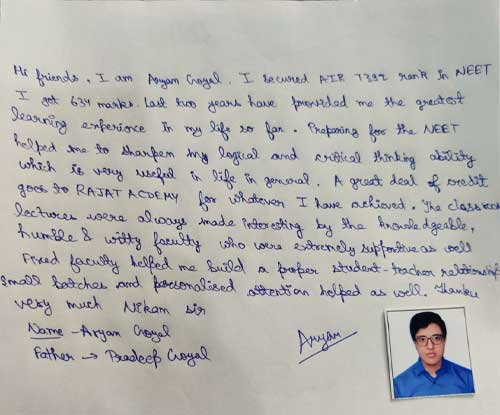 Hi friends, I am Aryam Goyal. I secured AIR 7392 rank in NEET
I got 634 marks. Last two years have provided me the greatest
learning experience in my life so far. Preparing for the NEET
helped me to sharpen my logical and critical thinking ability
which is very useful in life in general. A great deal of credit
goes to RAJAT ACDEMY for whatever I have achieved. The classroom
lectures were always made interesting by the knowledgeable,
humble & witty faculty who were extremely supportive as well
Fixed faculty helped me build a proper student-teacher relationship
Small batches and personalised attention helped as well. Thanku
very much Nikam sir
Name - Aryam Goyal
Father → Pradeep Goyal
Aryam